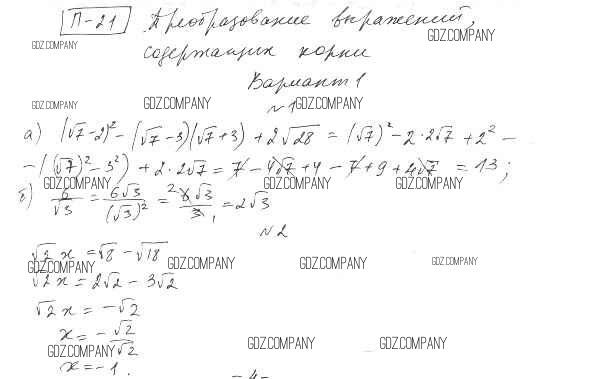 П-21 Преобразование выражений,
GDZ.COMPANY GDZ.COMPANY
содержащих корни
Вариант 1
GDZ.COMPANY GDZ.COMPANY №1 GDZ.COMPANY
а) (√7-2)² - (√7-3)(√7+3) + 2√28 = (√7)² - 2·2√7 + 2² -
- ((√7)² - 3²) + 2·2√7 = 7 - 4√7 + 4 - 7 + 9 + 4√7 = 13;
GDZ.COMPANY GDZ.COMPANY GDZ.COMPANY
б) 6/√3 = 6√3/(√3)² = ²6√3/3₁ = 2√3
№2
√2 x = √8 - √18
GDZ.COMPANY GDZ.COMPANY GDZ.COMPANY GDZ.COMPANY
√2 x = 2√2 - 3√2
√2 x = -√2
x = - √2/√2
GDZ.COMPANY GDZ.COMPANY GDZ.COMPANY
x = -1.
-4-